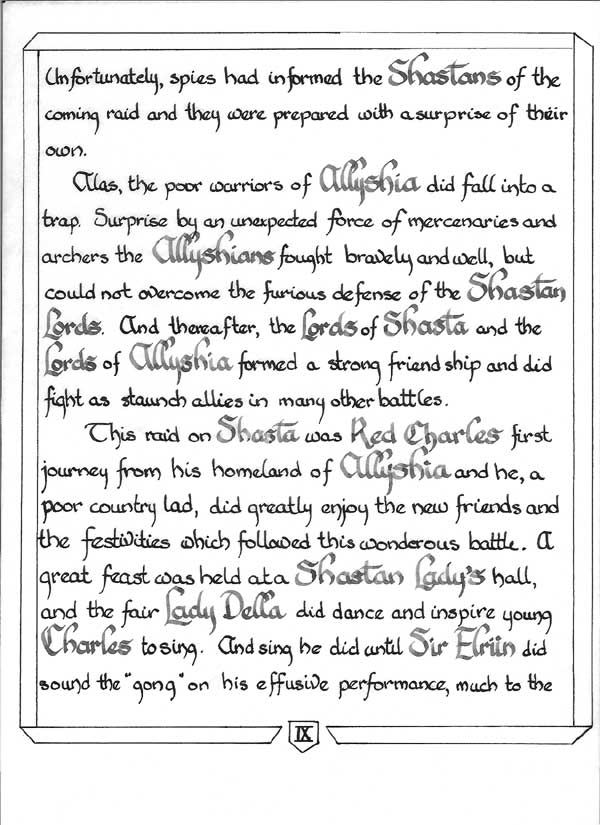 Unfortunately, spies had informed the Shastans of the
coming raid and they were prepared with a surprise of their
own.
Alas, the poor warriors of Allyshia did fall into a
trap. Surprise by an unexpected force of mercenaries and
archers the Allyshians fought bravely and well, but
could not overcome the furious defense of the Shastan
Lords. And thereafter, the Lords of Shasta and the
Lords of Allyshia formed a strong friendship and did
fight as staunch allies in many other battles.
This raid on Shasta was Red Charles first
journey from his homeland of Allyshia and he, a
poor country lad, did greatly enjoy the new friends and
the festivities which followed this wonderous battle. A
great feast was held at a Shastan Lady's hall,
and the fair Lady Della did dance and inspire young
Charles to sing. And sing he did until Sir Elriin did
sound the "gong" on his effusive performance, much to the
IX